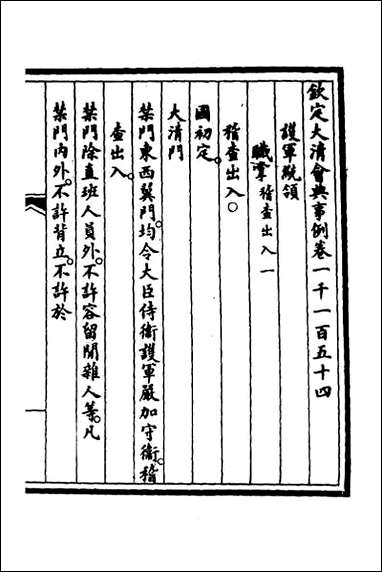 欽定大清會典事例卷一千一百五十四
護軍統領
職掌稽查出入一
稽查出入○
國初定。
大清門
禁門東西翼門。均令大臣侍衛護軍嚴加守衛。稽
查出入。
禁門除直班人員外。不許容留閒雜人等。凡
禁門內外。不許背立。不許於